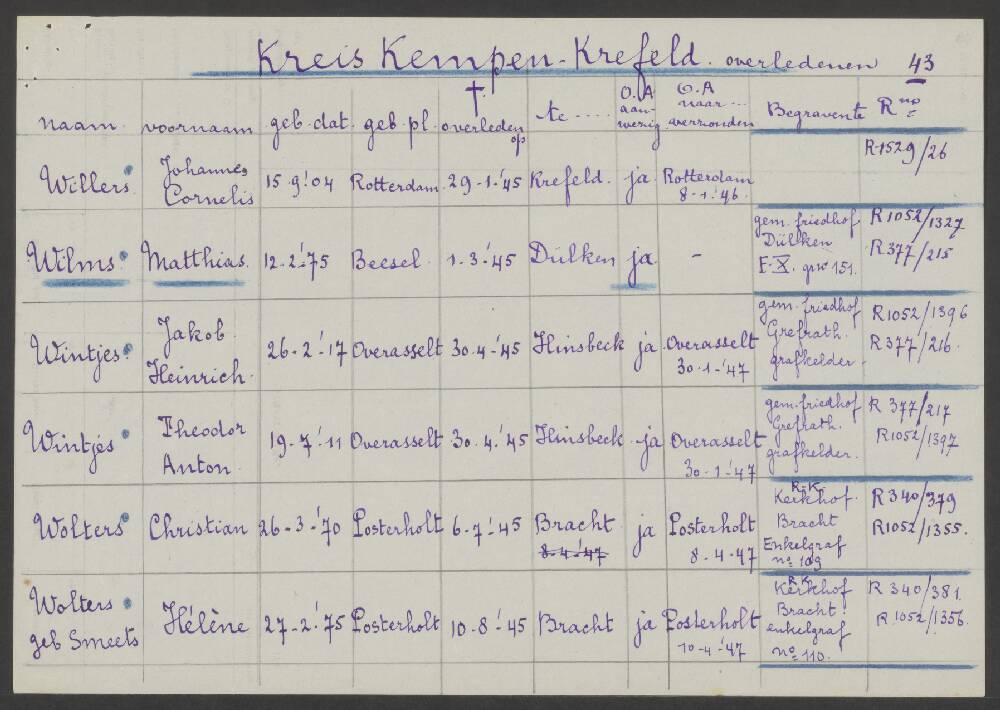 Kreis Kempen-Krefeld. overledenen 43
naam. voornaam geb. dat. geb. pl. † overleden op te .... O.A aanwezig O.A naar ... verzonden Begraven te R no
Willers Johannes Cornelis 15-9-'04 Rotterdam 29-1-'45 Krefeld. ja Rotterdam 8-1-'46. R1529/26
Wilms Matthias. 12-2-'75 Beesel. 1-3-'45 Dülken ja - gem. friedhof Dülken F.X. grw 151. R1052/1327 R377/215
Wintjes Jakob. Heinrich. 26-2-'17 Overasselt 30-4-'45 Hinsbeck ja Overasselt 30-1-'47 gem. friedhof Grefrath. grafkelder. R1052/1396 R377/216.
Wintjes Theodor Anton. 19-7-'11 Overasselt 30-4-'45 Hinsbeck ja Overasselt 30-1-'47 gem. friedhof Grefrath. grafkelder. R 377/217 R1052/1397
Wolters Christian 26-3-'70 Posterholt 6-7-'45 Bracht 8-4-'47 ja Posterholt 8-4-47 R.K. Kerkhof. Bracht Enkelgraf no 109 R 340/379 R1052/1355.
Wolters geb Smeets Hélène 27-2-'75 Posterholt 10-8-'45 Bracht ja Posterholt 10-4-'47 R.K. Kerkhof Bracht. enkelgraf no 110. R 340/381. R 1052/1356.